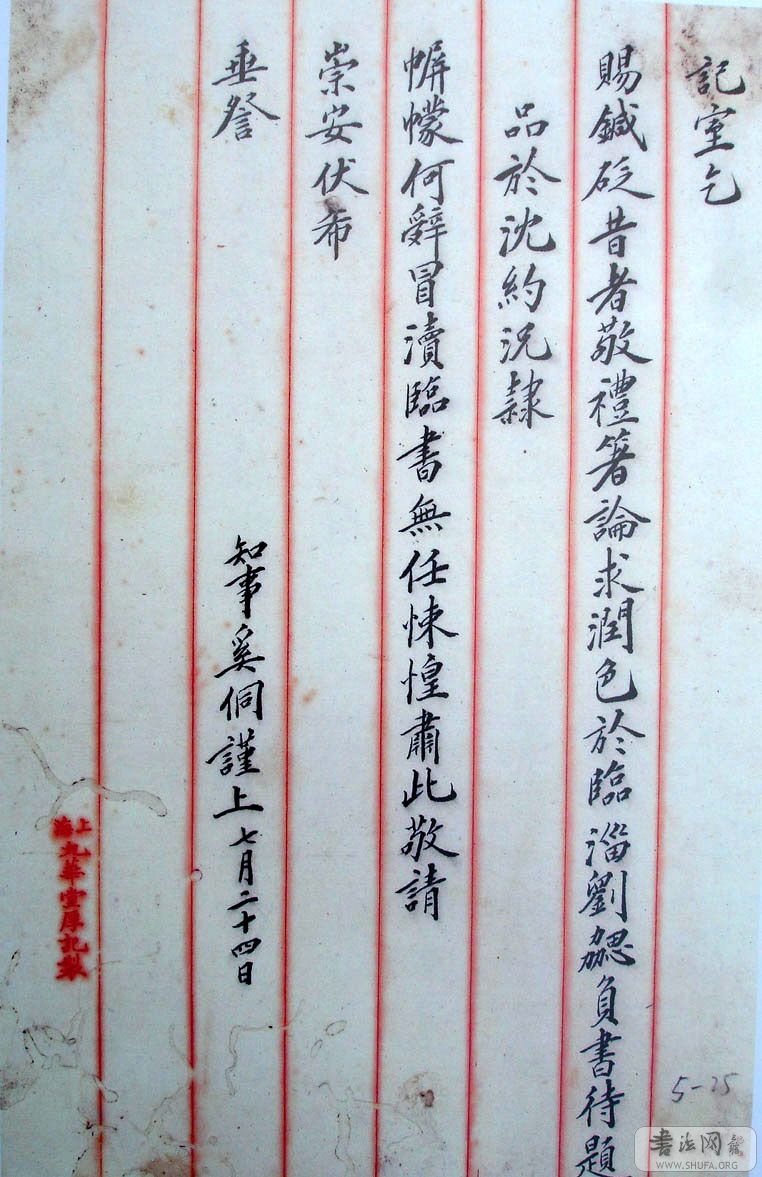 記室乞
賜鍼砭昔者敬禮箸論求潤色於臨淄劉勰負書待題
品於沈約況隸
帲幪何辭冒瀆臨書無任悚惶肅此敬請
崇安伏希
垂詧
知事奚侗謹上七月二十四日
上海九華堂厚記製
5-25
书法网
WWW.SHUFA.ORG